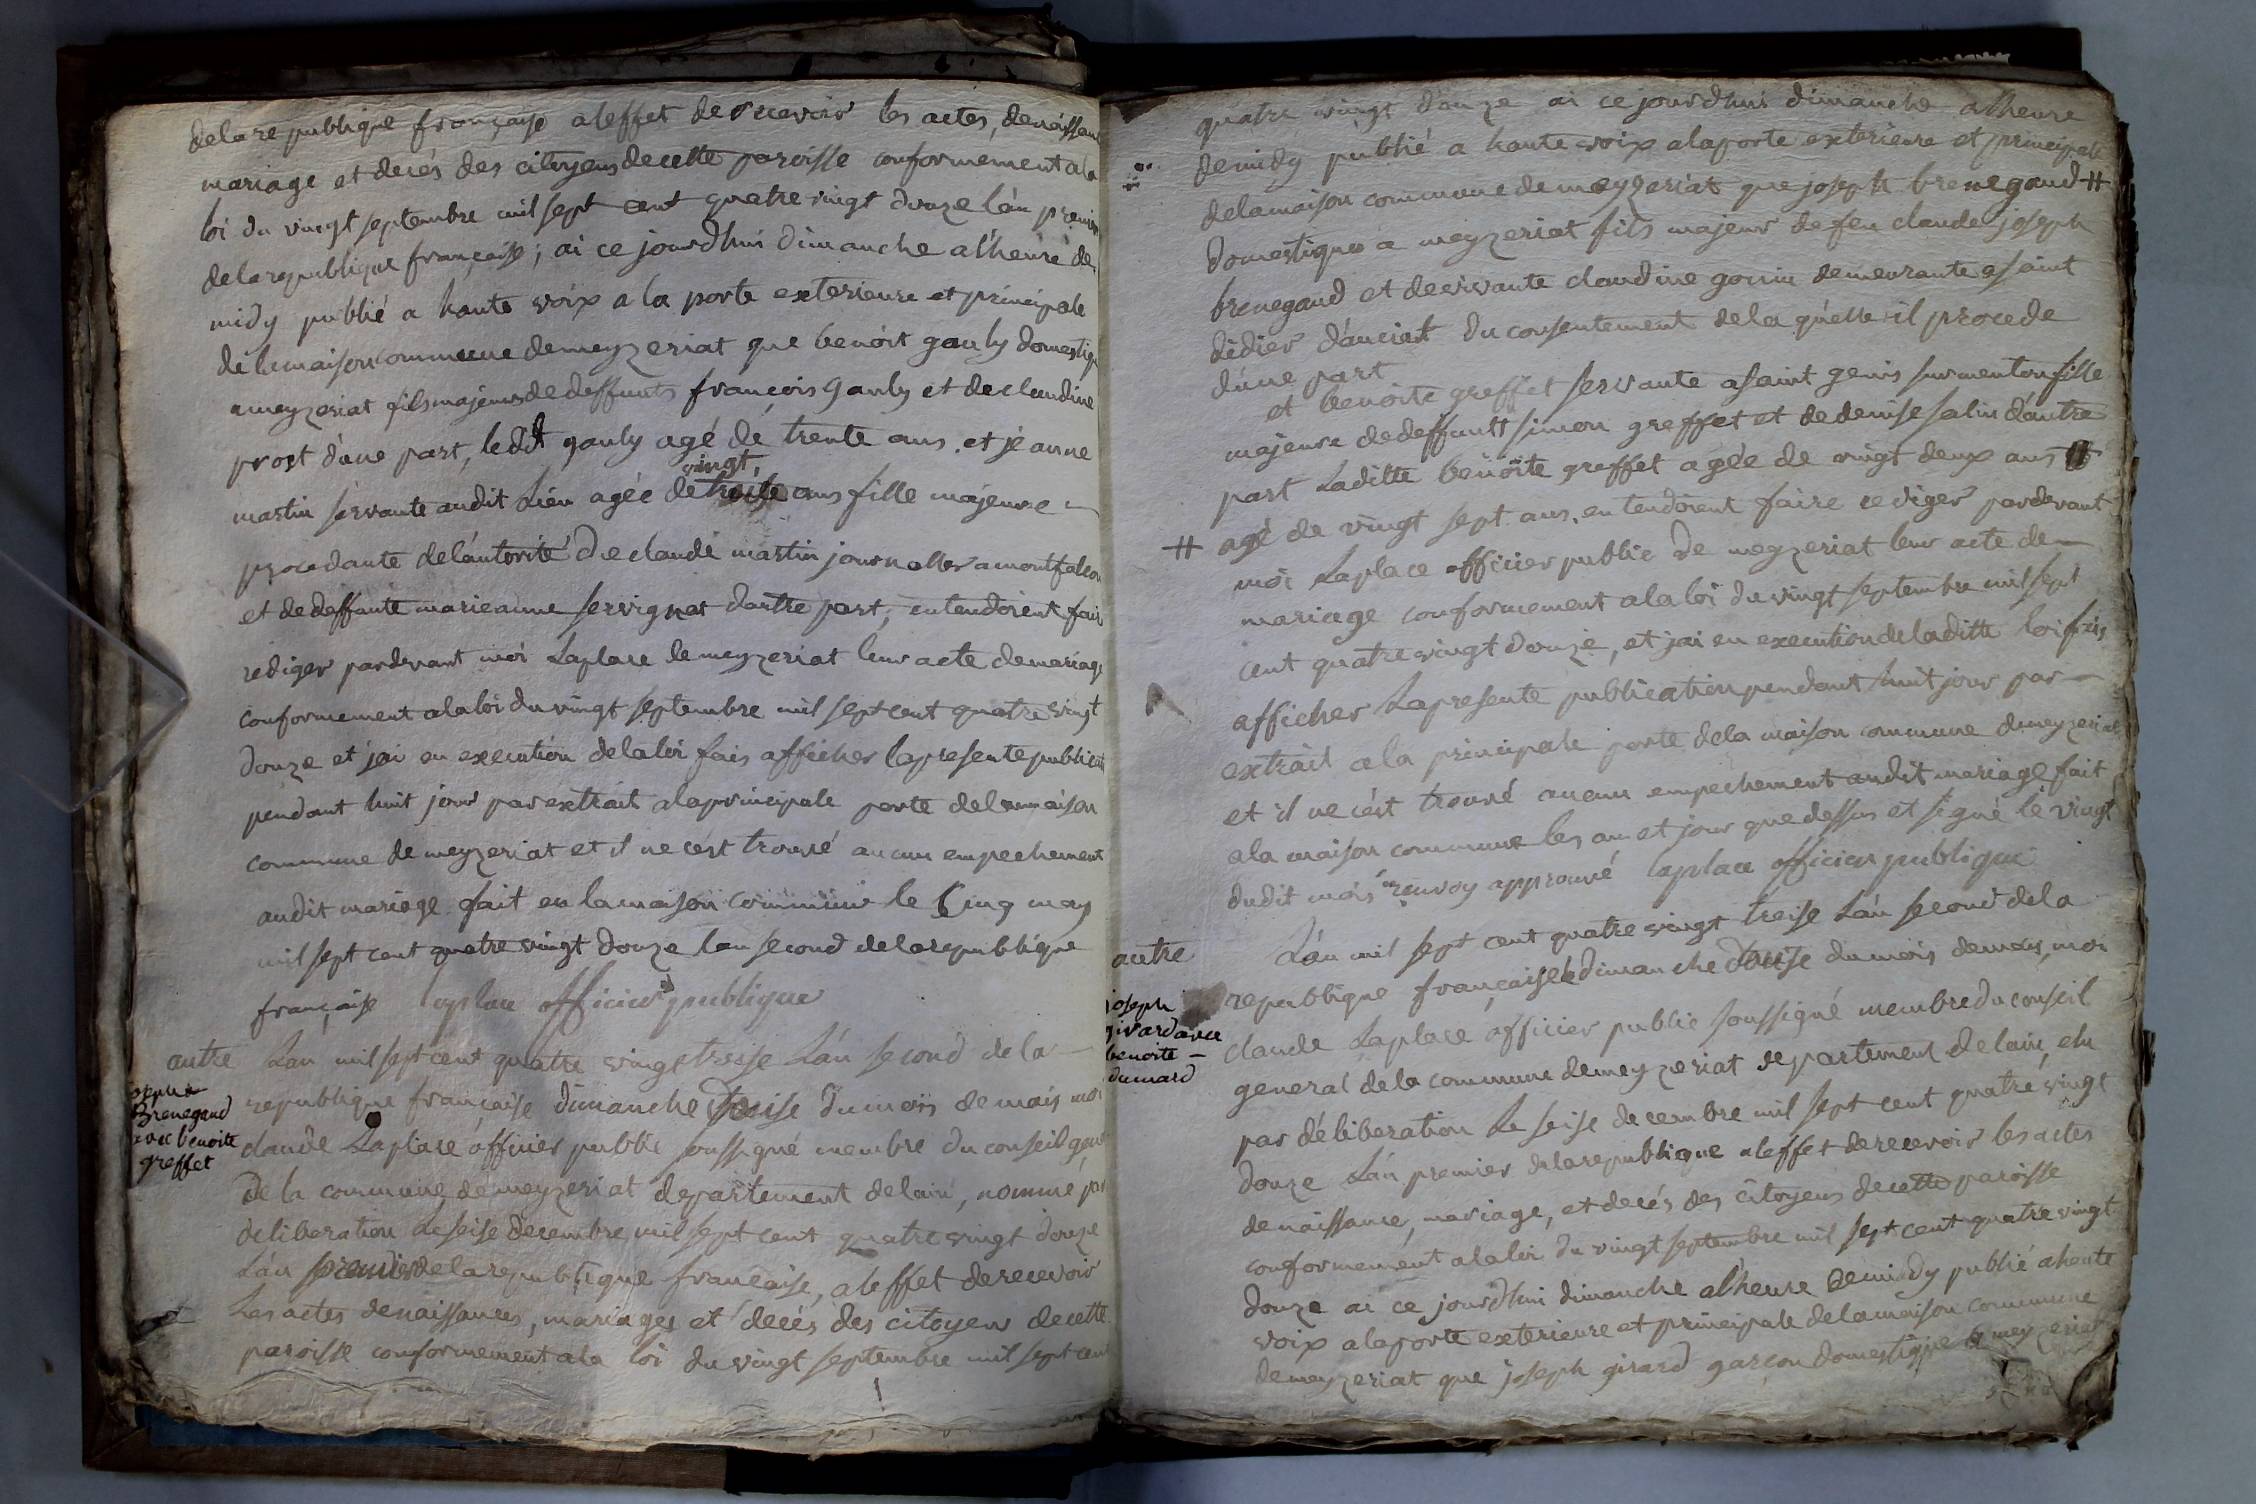 dela republique française aleffet de recevoir les actes, denaissance
mariage et decés des citoyens decette paroisse conformement ala
loi du vingt septembre mil sept cent quatre vingt douze lán premier
dela republique française; ai ce jourdhui dimanche alheure de
midy publié a haute voix a la porte exterieure et principale
de lamaison commune demeyzeriat que benoit gauly domestique
ameyzeriat fils majeur de deffunts françois gauly et de claudine
prost dúne part, ledit gauly agé de trente ans et jeanne
vingt
martin servante audit Lieu agée de trente ans fille majeure
procedante deláutorité de claude martin journallier amontfalcon
et de deffunte marieanne servignat dautre part, entendoient faire
rediger pardevant moi Laplace de meyzeriat leur acte demariage
conformement alaloi du vingt septembre mil sept cent quatre vingt
douze et jai en execution delaloi fais afficher lapresente publication
pendant huit jour par extrait alaprincipale porte delamaison
commune de meyzeriat et il ne cést trouvé aucun empechement
audit mariage fait en la maison commune le Cinq may
mil sept cent quatre vingt douze lan second delarepublique
française laplace officier publique
autre Lan mil sept cent quatre vingt treise Lán second de la
joseph
Brenegand
avec benoite
greffet
republique française dimanche treise dumois de mais moi
claude Laplace officier public soussigné membre du conseil general
De la commune de meyzeriat departement delain, nommé par
deliberation Le seise decembre mil sept cent quatre vingt douze
Lán premier delarepublique française, aleffet derecevoir
Les actes denaissances, mariages et decés des citoyens decette
paroisse conformement ala loi du vingt septembre mil sept cent
quatre vingt douze ai ce jourdhui dimanche alheure
demidy publié a haute voix alaporte exterieure et principale
delamaison commune demeyzeriat que joseph brenegand #
domestique a meyzeriat fils majeur de feu claude joseph
brenegand et devivante claudine gonin demeurante asaint
didier dáuciat du consentement dela quélle il procede
dúne part
et benoite greffet servante asaint genis surmenton fille
majeure dedeffuntt simon greffet et de denise salin dáutre
part Laditte benoite greffet agée de vingt deux ans #
# agé de vingt sept ans, entendoient faire rediger pardevant
moi Laplace officier public de meyzeriat leur acte de
mariage conformement alaloi du vingt septembre mil sept
cent quatre vingt douze, et jai en execution deladitte loi fais
afficher Lapresente publication pendant huit jour par
extrait ala principale porte dela maison commune demeyzeriat
et il ne cést trouvé aucun empechement audit mariage fait
ala maison commune les an et jour que dessus et signé le vingt
dudit mois renvoy approuvé laplace officier publique
autre Lán mil sept cent quatre vingt treise Lán second dela
joseph
girard avec
benoite
dumard
republique française le dimanche treise du mois demais, moi
claude Laplace officier public soussigné membre du conseil
general dela commune demeyzeriat departement delain, elu
par déliberation Le seise decembre mil sept cent quatre vingt
douze Lán premier delarepublique aleffet derecevoir les actes
de naissance, mariage, et decés des citoyens decette paroisse
conformement alaloi du vingt septembre mil sept cent quatre vingt
douze ai ce jourdhui dimanche alheure demidy publié ahaute
voix alaporte exterieure et principale delamaison commune
demeyzeriat que joseph girard garçon domestique a meyzeriat